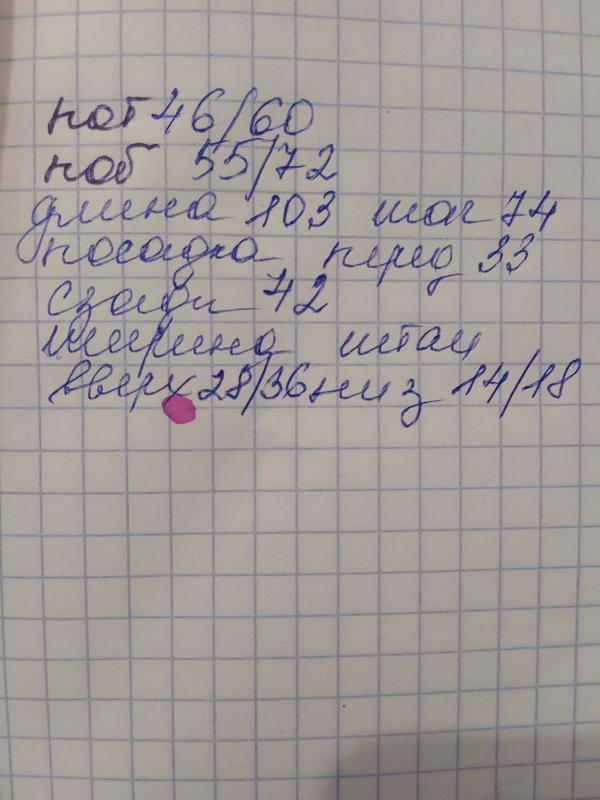 пот 46/60
поб 55/72
длина 103 шаг 74
посадка перед 33
сзади 42
ширина штан
вверх 28/36 низ 14/18